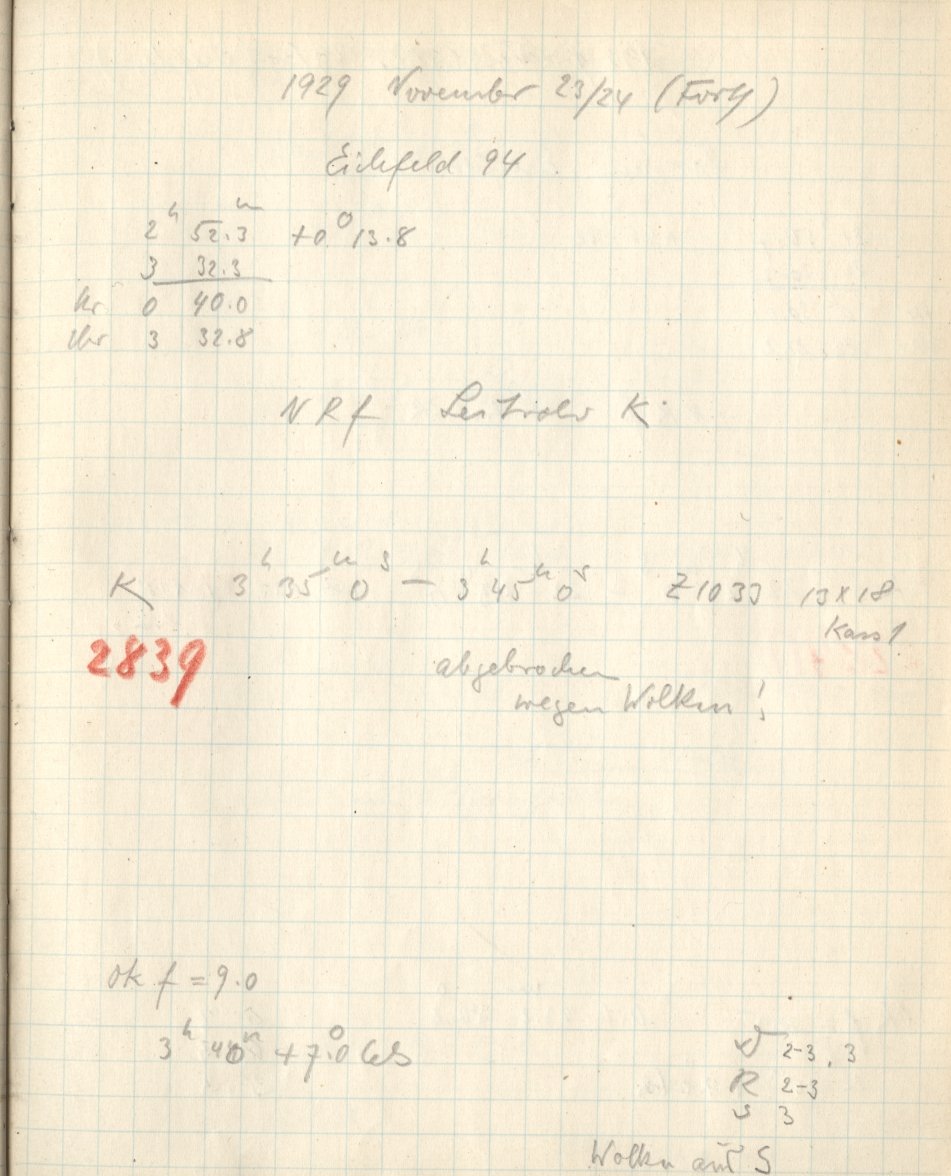 1929 November 23/24 (Forts)
Eichfeld 94
2ʰ 52.3ᵐ +0° 13.8
3 32.3
Kr 0 40.0
Uhr 3 32.8
NRf Leitrohr K
K 3ʰ 35ᵐ 0ˢ – 3ʰ 45ᵐ 0ˢ Z1033 13x18
Kass 1
2839
abgebrochen
wegen Wolken!
Ok f = 9.0
3ʰ 40ᵐ +7.°0 Cels
2-3, 3
R 2-3
3
Wolken aus S